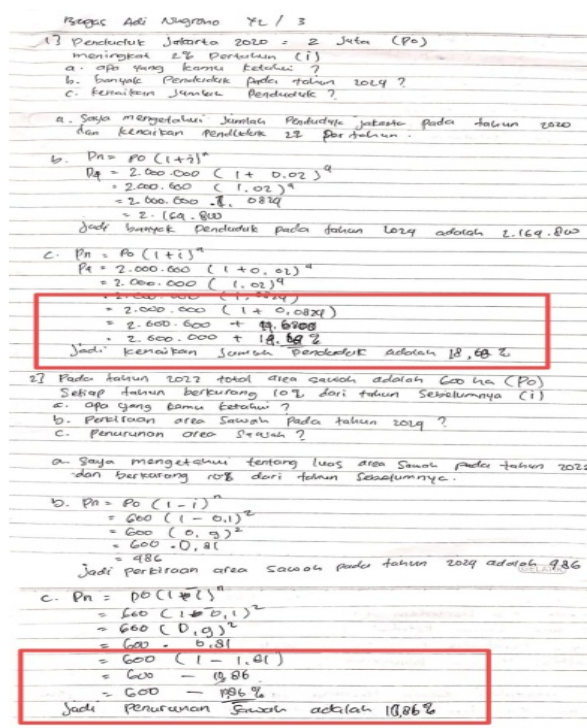 Bagas Adi Nugroho XL / 3
1] Penduduk Jakarta 2020 = 2 Juta (Po)
meningkat 2% Pertahun (i)
a. apa yang kamu ketahui ?
b. banyak Penduduk Pada tahun 2024 ?
c. kenaikan Jumlah Penduduk ?
a. Saya mengetahui Jumlah Penduduk Jakarta Pada tahun 2020
dan kenaikan Penduduk 2% Per tahun.
b. Pn = Po (1+i)ⁿ
P4 = 2.000.000 ( 1 + 0,02 )⁴
= 2.000.000 ( 1,02 )⁴
= 2.000.000 . 1, 0824
= 2.164.800
Jadi banyak Penduduk pada tahun 2024 adalah 2.164.800
c. Pn = Po (1+i)ⁿ
P4 = 2.000.000 ( 1 + 0,02 )⁴
= 2.000.000 ( 1,02 )⁴
= 2.000.000 ( 1,0824 )
= 2.000.000 ( 1 + 0,0824 )
= 2.000.000 +
= 2.000.000 + %
Jadi kenaikan Jumlah Penduduk Adalah 18,68 %
2] Pada tahun 2022 total area sawah adalah 600 ha (Po)
Setiap tahun berkurang 10% dari tahun Sebelumnya (i)
a. apa yang kamu ketahui ?
b. Perkiraan area Sawah Pada tahun 2024 ?
c. Penurunan area Sawah ?
a. Saya mengetahui tentang luas area Sawah Pada tahun 2022
dan berkurang 10% dari tahun Sebelumnya.
b. Pn = Po (1 - i)ⁿ
= 600 ( 1 - 0,1 )²
= 600 ( 0,9 )²
= 600 . 0,81
= 486
Jadi Perkiraan area sawah pada tahun 2024 adalah 486
c. Pn = Po ( 1 - i )ⁿ
= 600 ( 1 - 0,1 )²
= 600 ( 0,9 )²
= 600 . 0,81
= 600 ( 1 - 1,81 )
= 600 -
= 600 - %
Jadi Penurunan Sawah adalah %